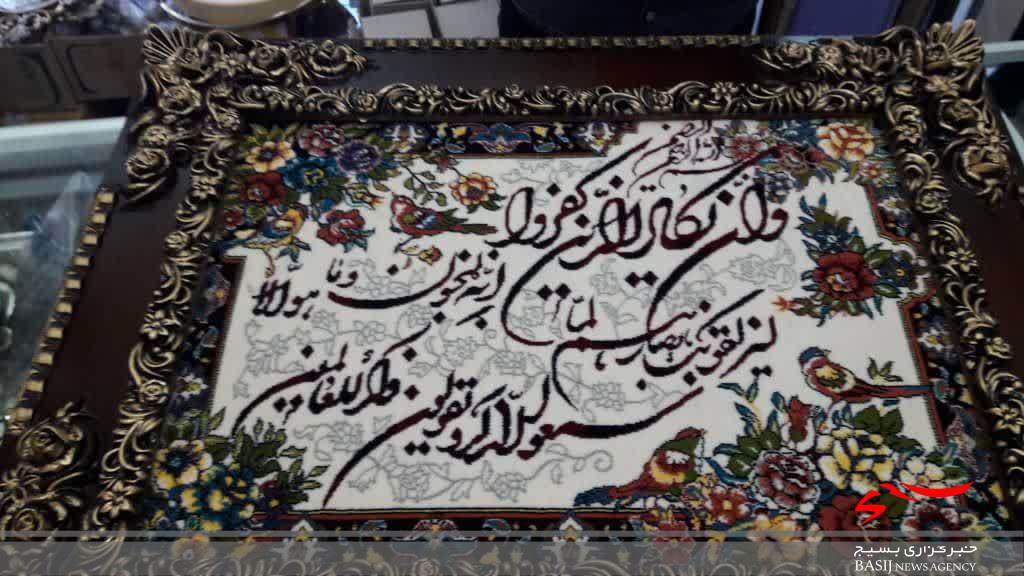 بسم الله الرحمن الرحیم
وان یکاد الذین کفروا
لیزلقونک بابصارهم لما
سمعوا الذکر و یقولون
انه لمجنون وما هو الا
ذکر للعالمین
خبرگزاری بسیج
BASIJ NEWS AGENCY